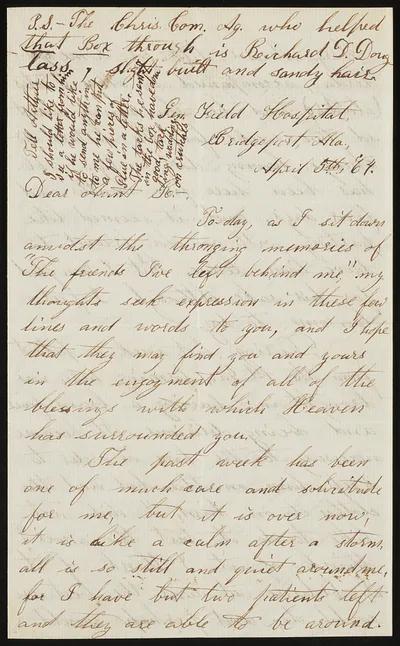 P.S. - The Chris. Com. Ag. who helped
that Box through is Richard D. Doug
lass, slight built and sandy hair.
Tell
I should like to
see a letter from him
if he would like
to send anything
to me he can put
a few
in a letter.
in the box
Gen. Field Hospital,
Bridgeport Ala,
April 5th, '64.
Dear Aunt
To-day, as I sit down
amidst the thronging memories of
"The friends I've left behind me" my
thoughts seek expression in these few
lines and words to you, and I hope
that they may find you and yours
in the enjoyment of all of the
blessings with which Heaven
has surrounded you.
The past week has been
one of much care and solicitude
for me, but it is over now,
it is like a calm after a storm,
all is so still and quiet around me,
for I have but two patients left
and they are able to be around.